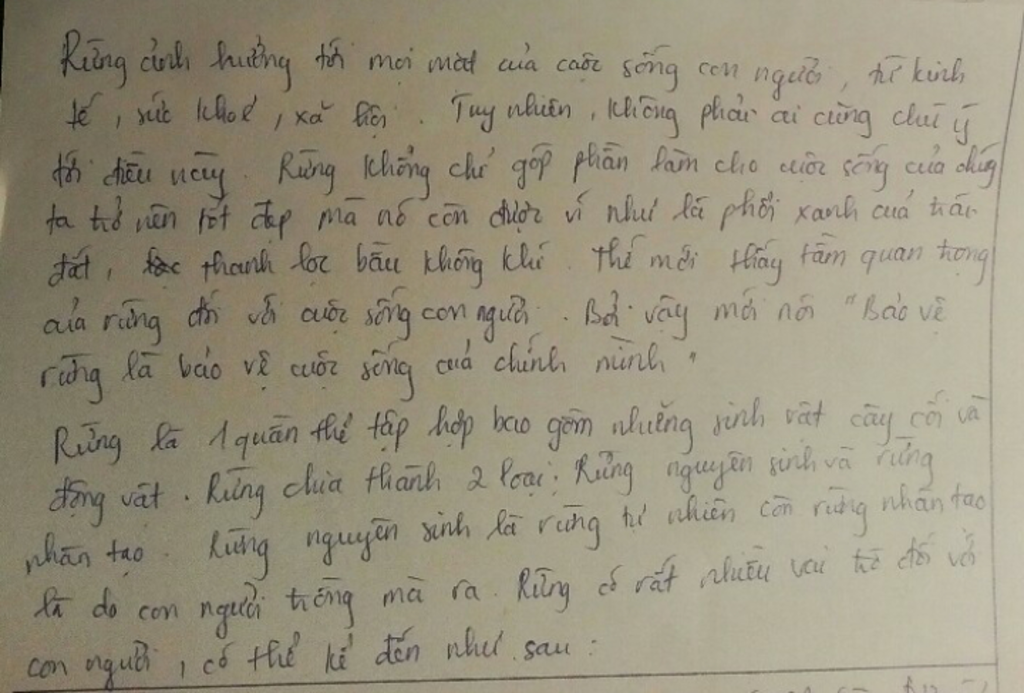 Rừng ảnh hưởng tới mọi mặt của cuộc sống con người, từ kinh
tế, sức khoẻ, xã hội. Tuy nhiên, không phải ai cũng chú ý
tới điều này. Rừng không chỉ góp phần làm cho cuộc sống của chúng
ta trở nên tốt đẹp mà nó còn được ví như là phổi xanh của trái
đất, thanh lọc bầu không khí. Thế mới thấy tầm quan trọng
của rừng đối với cuộc sống con người. Bởi vậy mới nói "Bảo vệ
rừng là bảo vệ cuộc sống của chính mình"
Rừng là 1 quần thể tập hợp bao gồm những sinh vật cây cối và
động vật. Rừng chia thành 2 loại: Rừng nguyên sinh và rừng
nhân tạo. Rừng nguyên sinh là rừng tự nhiên còn rừng nhân tạo
là do con người trồng mà ra. Rừng có rất nhiều vai trò đối với
con người, có thể kể đến như sau: